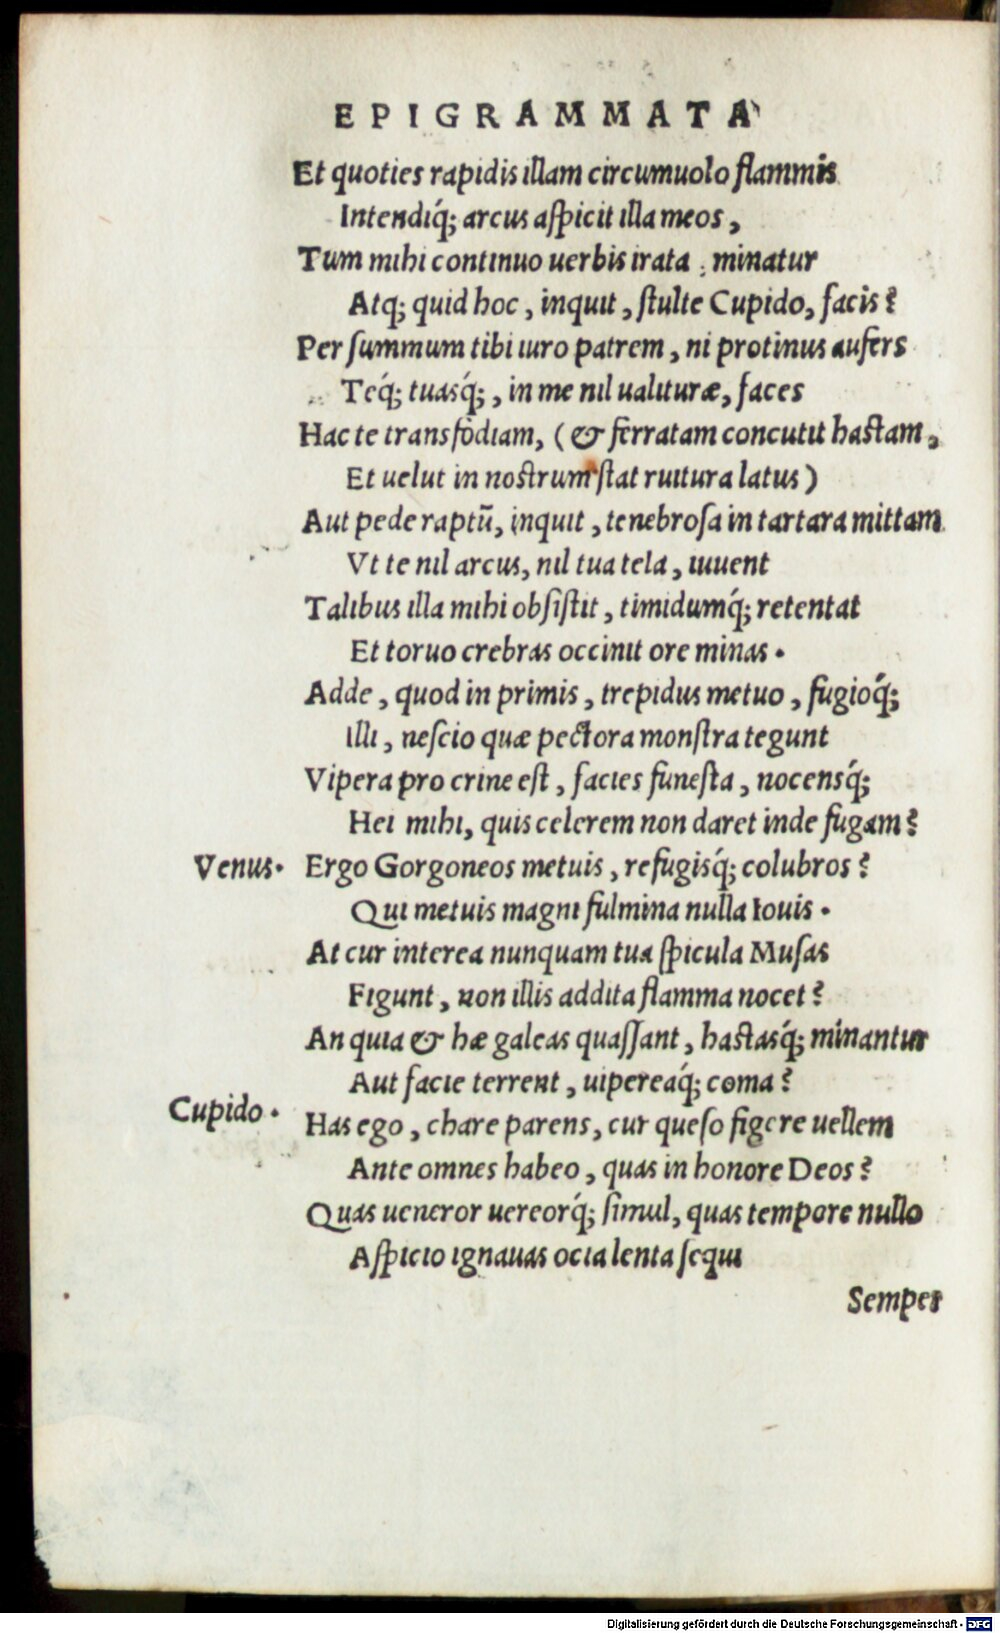 EPIGRAMMATA
Et quoties rapidis illam circumuolo flammis
Intendiq́; arcus aſpicit illa meos,
Tum mihi continuo uerbis irata, minatur
Atq; quid hoc, inquit, ſtulte Cupido, facis?
Per ſummum tibi iuro patrem, ni protinus aufers
Teq́; tuasq́;, in me nil ualituræ, faces
Hac te transfodiam, (& ferratam concutit haſtam,
Et uelut in noſtrum ſtat ruitura latus)
Aut pede raptū, inquit, tenebroſa in tartara mittam
Vt te nil arcus, nil tua tela, iuuent
Talibus illa mihi obſiſtit, timidumq́; retentat
Et toruo crebras occinit ore minas.
Adde, quod in primis, trepidus metuo, fugioq́;
Illi, neſcio quæ pectora monſtra tegunt
Vipera pro crine eſt, facies funeſta, nocensq́;
Hei mihi, quis celerem non daret inde fugam?
Venus. Ergo Gorgoneos metuis, refugisq́; colubros?
Qui metuis magni fulmina nulla Iouis.
At cur interea nunquam tua ſpicula Muſas
Figunt, non illis addita flamma nocet?
An quia & hæ galeas quaſſant, haſtasq́; minantur
Aut facie terrent, uipereaq́; coma?
Cupido. Has ego, chare parens, cur queſo figere uellem
Ante omnes habeo, quas in honore Deos?
Quas ueneror uereorq́; ſimul, quas tempore nullo
Aſpicio ignauas ocia lenta ſequi
Semper
Digitalisierung gefördert durch die Deutsche Forschungsgemeinschaft - DFG